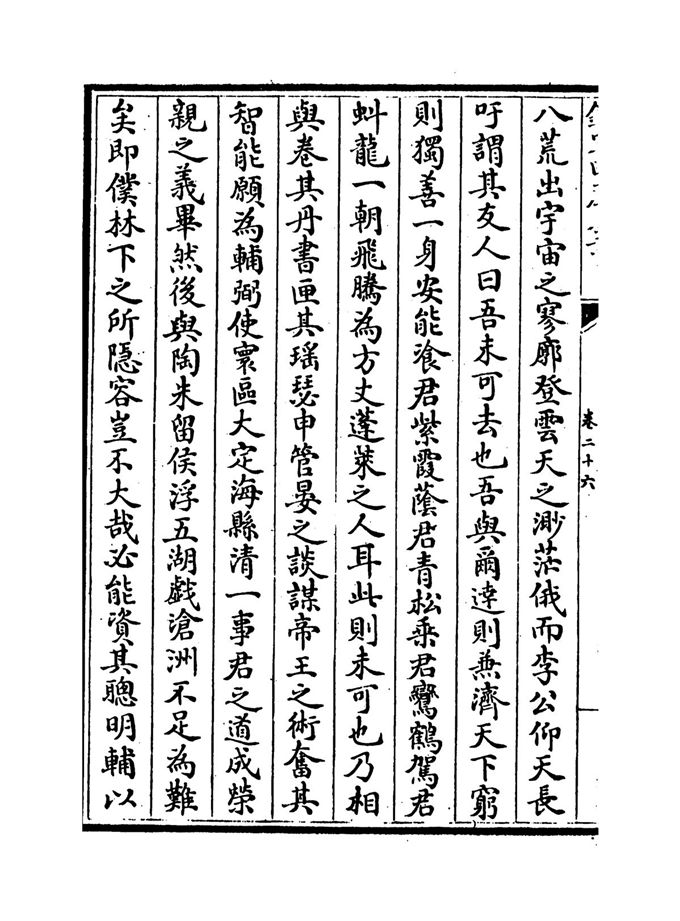 卷二十六
八荒出宇宙之寥廓登雲天之渺茫俄而李公仰天長
吁謂其友人曰吾未可去也吾與爾達則兼濟天下窮
則獨善一身安能飡君紫霞蔭君青松乘君鸞鶴駕君
虯龍一朝飛騰為方丈蓬萊之人耳此則未可也乃相
與卷其丹書匣其瑶瑟申管晏之談謀帝王之術奮其
智能願為輔弼使寰區大定海縣清一事君之道成榮
親之義畢然後與陶朱留侯浮五湖戯滄洲不足為難
矣即僕林下之所隱容豈不大哉必能資其聰明輔以